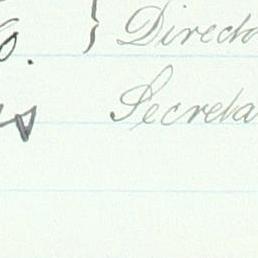 o. } Directo
s Secreta